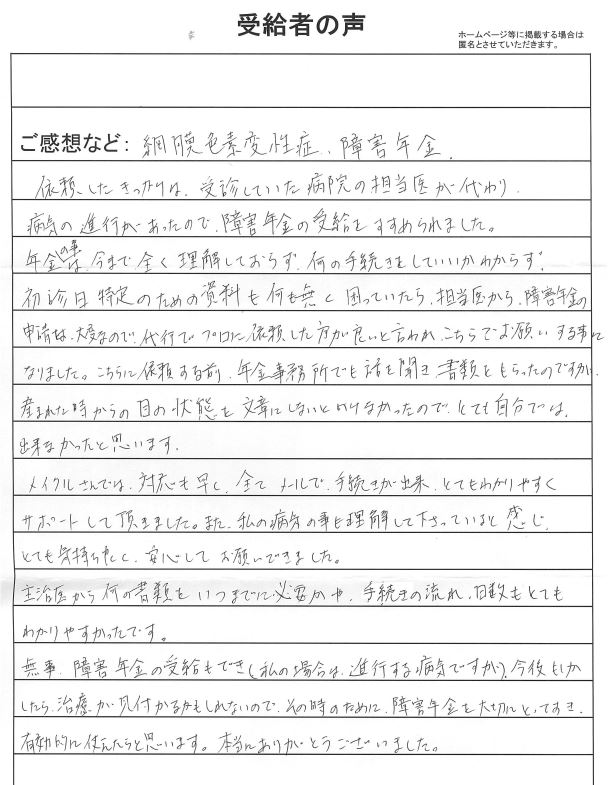 受給者の声
ホームページ等に掲載する場合は
匿名とさせていただきます。
ご感想など: 網膜色素変性症、障害年金、
依頼したきっかけは、受診していた病院の担当医が代わり、
病気の進行があったので、障害年金の受給をすすめられました。
年金の事は、今まで全く理解しておらず、何の手続きをしていいかわからず、
初診日特定のための資料も何も無く困っていたら、担当医から、障害年金の
申請は、大変なので、代行でプロに依頼した方が良いと言われ、こちらでお願いする事に
なりました。こちらに依頼する前、年金事務所でも話を聞き書類ももらったのですが、
産まれた時からの目の状態を文章にしないといけなかったので、とても自分では、
出来なかったと思います。
メイクルさんでは、対応も早く、全てメールで、手続きが出来、とてもわかりやすく
サポートして頂きました。また、私の病気の事も理解して下さっていると感じ、
とても気持ち的に、安心してお願いできました。
主治医から何の書類をいつまでに必要かや、手続きの流れ、日数もとても
わかりやすかったです。
無事、障害年金の受給もでき、私の場合は、進行する病気ですが、今後もしか
したら、治療が見付かるかもしれないので、その時のために、障害年金を大切にとっておき、
有効的に使えたらと思います。本当にありがとうございました。